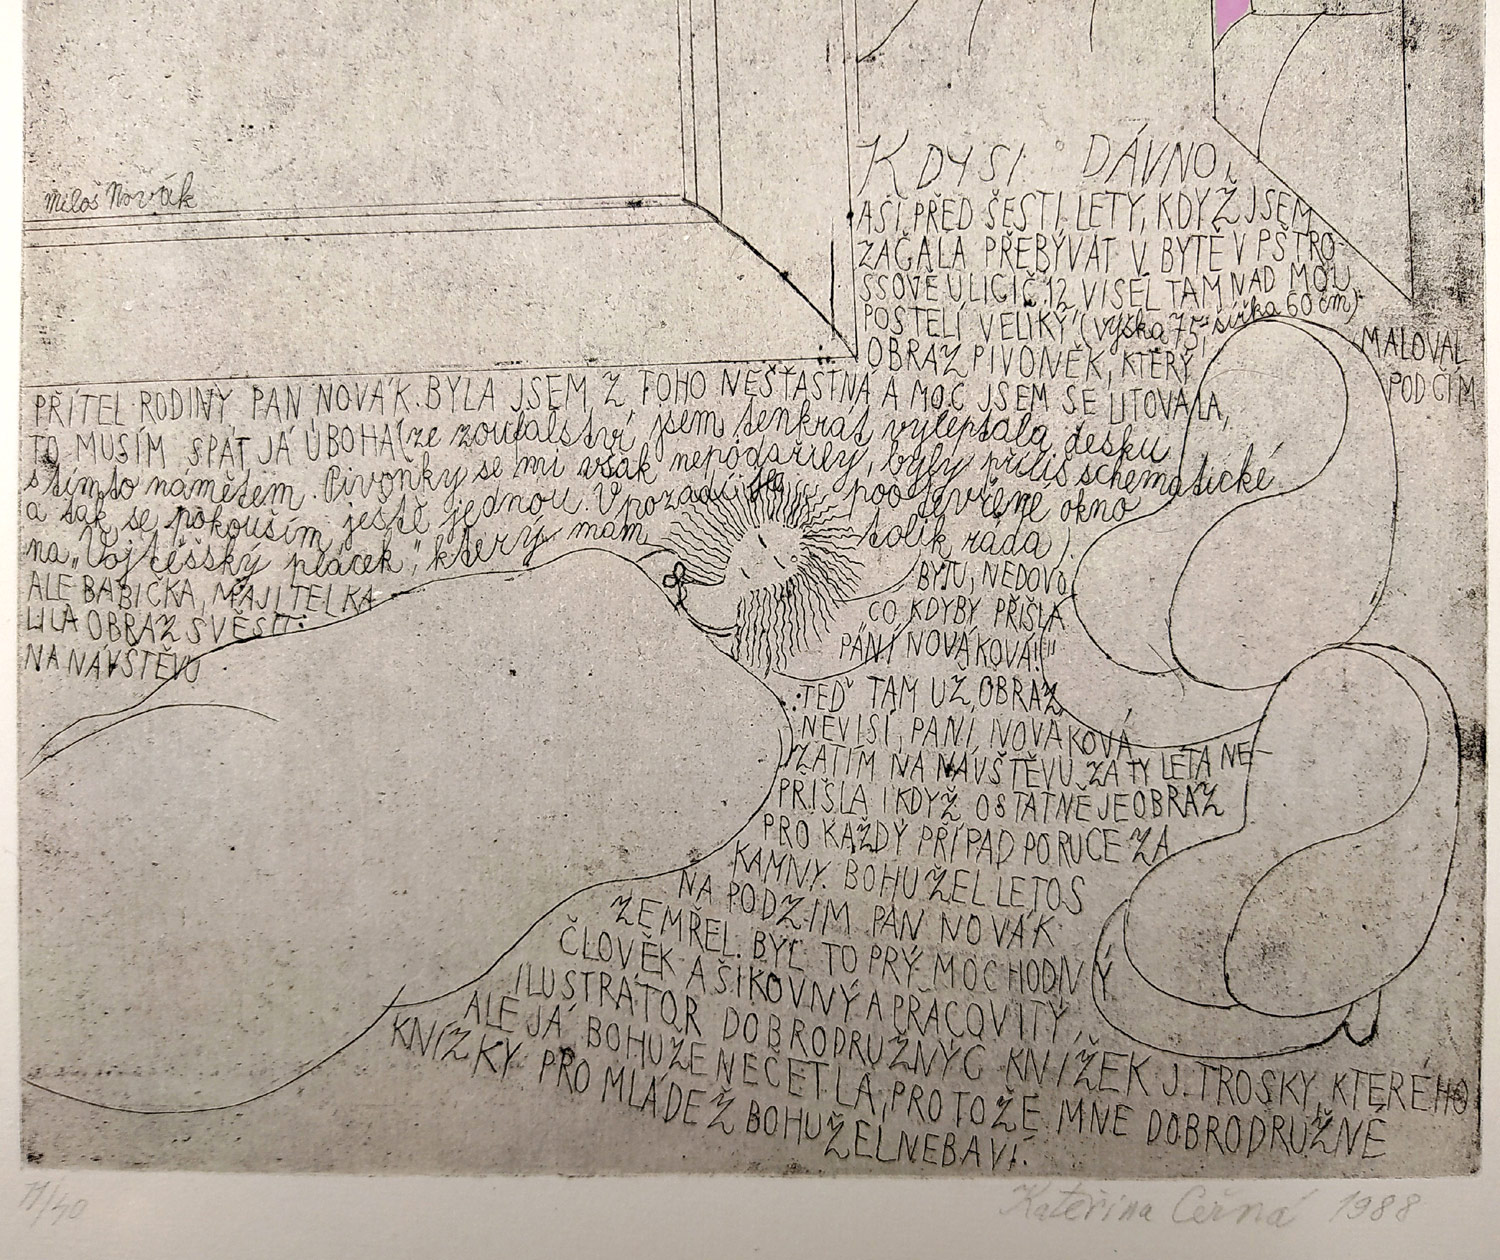 Miloš Novák
KDYSI DÁVNO,
ASI PŘED ŠESTI LETY, KDYŽ JSEM
ZAČALA PŘEBÝVAT V BYTĚ V PŠTRO-
SSOVĚ ULICI Č.12, VISEL TAM NAD MOU
POSTELÍ VELIKÝ (výška 75, šířka 60 cm)
OBRAZ PIVONĚK, KTERÝ MALOVAL
PŘÍTEL RODINY PAN NOVÁK. BYLA JSEM Z TOHO NEŠŤASTNÁ A MOC JSEM SE LITOVALA, POD ČÍM
TO MUSÍM SPÁT, JÁ ÚBOHÁ (ze zoufalství jsem tenkrát vyleptala desku
s tímto námětem. Pivoňky se mi však nepodařily, byly příliš schematické
a tak se pokouším ještě jednou. V pozadí je pootevřené okno
na „Vojtěšský plácek“, který mám tolik ráda).
ALE BABIČKA, MAJITELKA BYTU, NEDOVO
LILA OBRAZ SVĚSIT: CO KDYBY PŘIŠLA
NA NÁVŠTĚVU PANÍ NOVÁKOVÁ!"
TEĎ TAM UŽ OBRAZ
NEVISÍ, PANÍ NOVÁKOVÁ
ZATÍM NA NÁVŠTĚVU ZA TY LÉTA NE-
PŘIŠLA I KDYŽ OSTATNĚ JE OBRAZ
PRO KAŽDÝ PŘÍPAD PO RUCE ZA
KAMNY. BOHUŽEL LETOS
NA PODZIM PAN NOVÁK
ZEMŘEL. BYL TO PRÝ MOC HODNÝ
ČLOVĚK A ŠIKOVNÝ A PRACOVITÝ,
ILUSTRÁTOR DOBRODRUŽNÝC KNÍŽEK J. TROSKY, KTERÉHO
ALE JÁ BOHUŽE NEČETLA, PROTOŽE MNE DOBRODRUŽNÉ
KNÍŽKY PRO MLÁDEŽ BOHUŽEL NEBAVÍ.
11/40
Kateřina Černá 1988